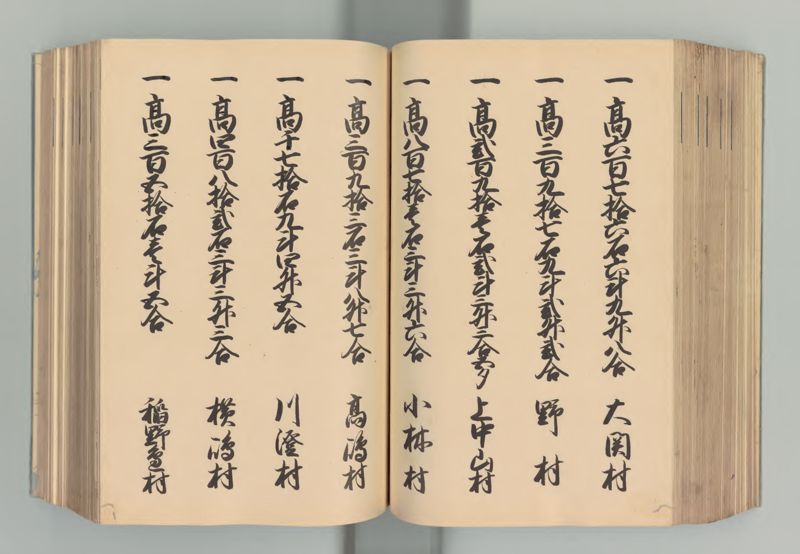 一高六百七拾六石六斗九升八合 大関村
一高三百九拾七石九斗弐升弐合 野村
一高弐百九拾壱石弐斗三升三合四夕 上中山村
一高八百七拾壱石三斗三升六合 小林村
一高三百九拾三石三斗八升七合 高嶋村
一高千七拾石九斗四升五合 川澄村
一高四百八拾弐石三斗三升三合 横嶋村
一高三百五拾石壱斗五合 稲野辺村